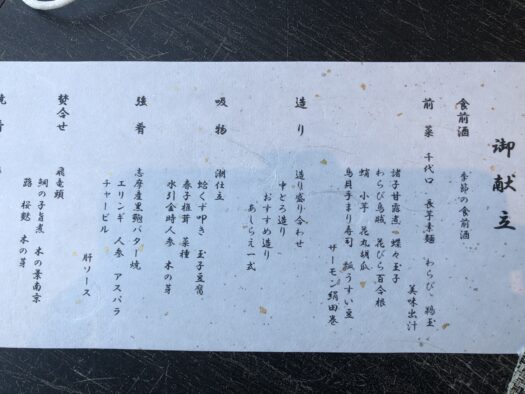 御献立
食前酒 季節の食前酒
前菜 千代口 長芋素麺 わらび 鶉玉
美味出汁
諸子甘露煮 蝶々玉子
わらび烏賊 花びら百合根
蛸 小芋 花丸胡瓜
鳥貝手まり寿司 一寸うすい豆
サーモン絹田巻
造り 造り盛り合わせ
中とろ造り
おすすめ造り
あしらえ一式
吸物 潮仕立
蛤くず叩き 玉子豆腐
春子椎茸 菜種
水引金時人参 木の芽
強肴 志摩産黒鮑バター焼
エリンギ 人参 アスパラ
チャービル
肝ソース
焚合せ 飛竜頭
鯛の子旨煮 木の葉南京
蕗 桜麩 木の芽